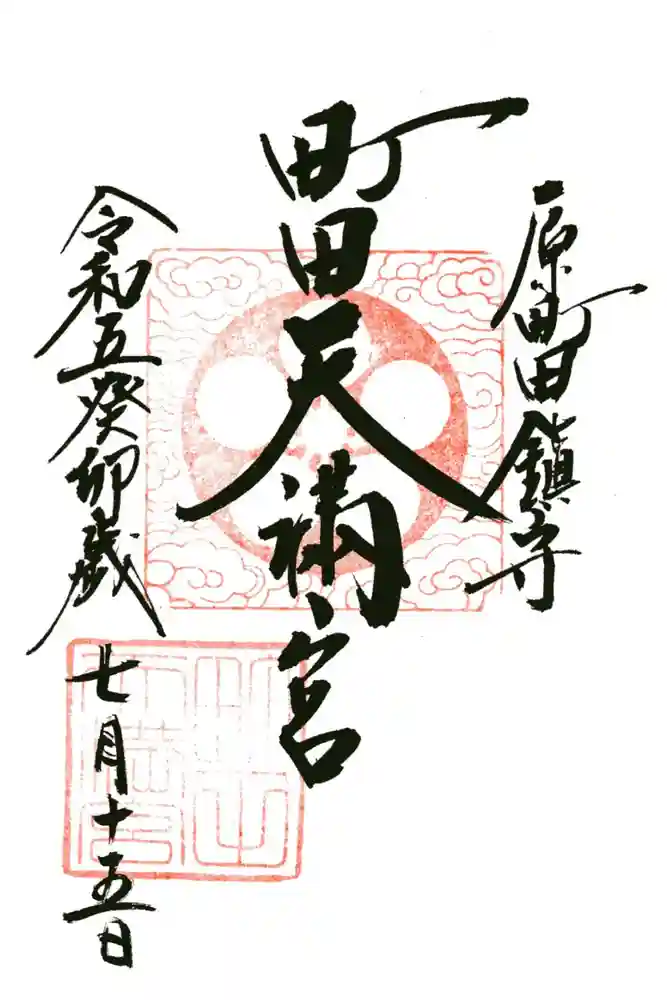 原町田鎮守
町田天満宮
令和五癸卯歳
七月十五日
町田天満宮